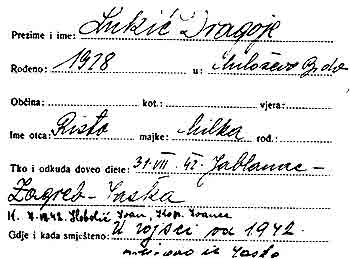 Prezime i ime: Lukić Dragoje
Rođeno: 1928 u: Miloševo Brdo
Općina: kot.: vjera:
Ime otca: Risto majke: Milka rod.:
Tko i odkuda doveo diete: 31. VII. 42. Jablanac -
Zagreb - Jaska
K. 7. 42. Slobolić Ivan, Kop. Ivanec
Gdje i kada smješteno: U vojsci od 1942.